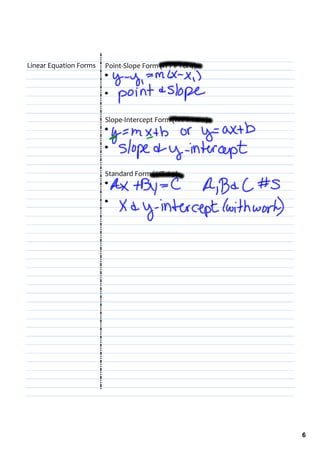 Linear Equation Forms
Point-Slope Form
• y-y₁=m(x-x₁)
• point & slope
Slope-Intercept Form
• y=mx+b or y=ax+b
• slope & y-intercept
Standard Form
• Ax+By=C A,B&C #s
• X & y-intercept (with work)
6